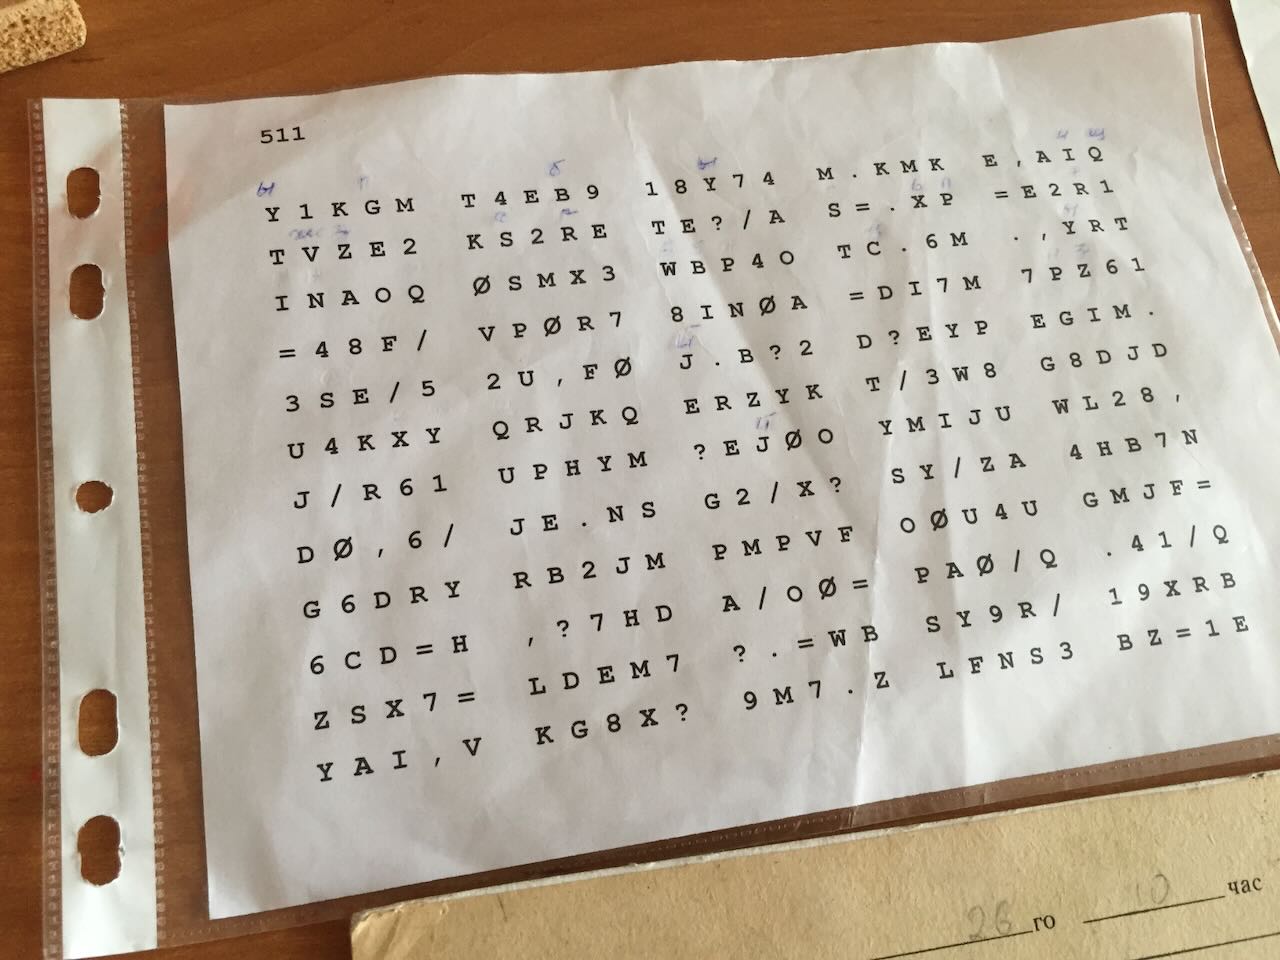 511
Y1KGM T4EB9 18Y74 M.KMK E,AIQ
TVZE2 KS2RE TE?/A S=.XP =E2R1
INAOQ ØSMX3 WBP4O TC.6M .,YRT
=48F/ VPØR7 8INØA =DI7M 7PZ61
3SE/5 2U,FØ J.B?2 D?EYP EGIM.
U4KXY QRJKQ ERZYK T/3W8 G8DJD
J/R61 UPHYM ?EJØO YMIJU WL28,
DØ,6/ JE.NS G2/X? SY/ZA 4HB7N
G6DRY RB2JM PMPVF OØU4U GMJF=
6CD=H ,?7HD A/OØ= PAØ/Q .41/Q
ZSX7= LDEM7 ?.=WB SY9R/ 19XRB
YAI,V KG8X? 9M7.Z LFNS3 BZ=1E
26 го 10 час